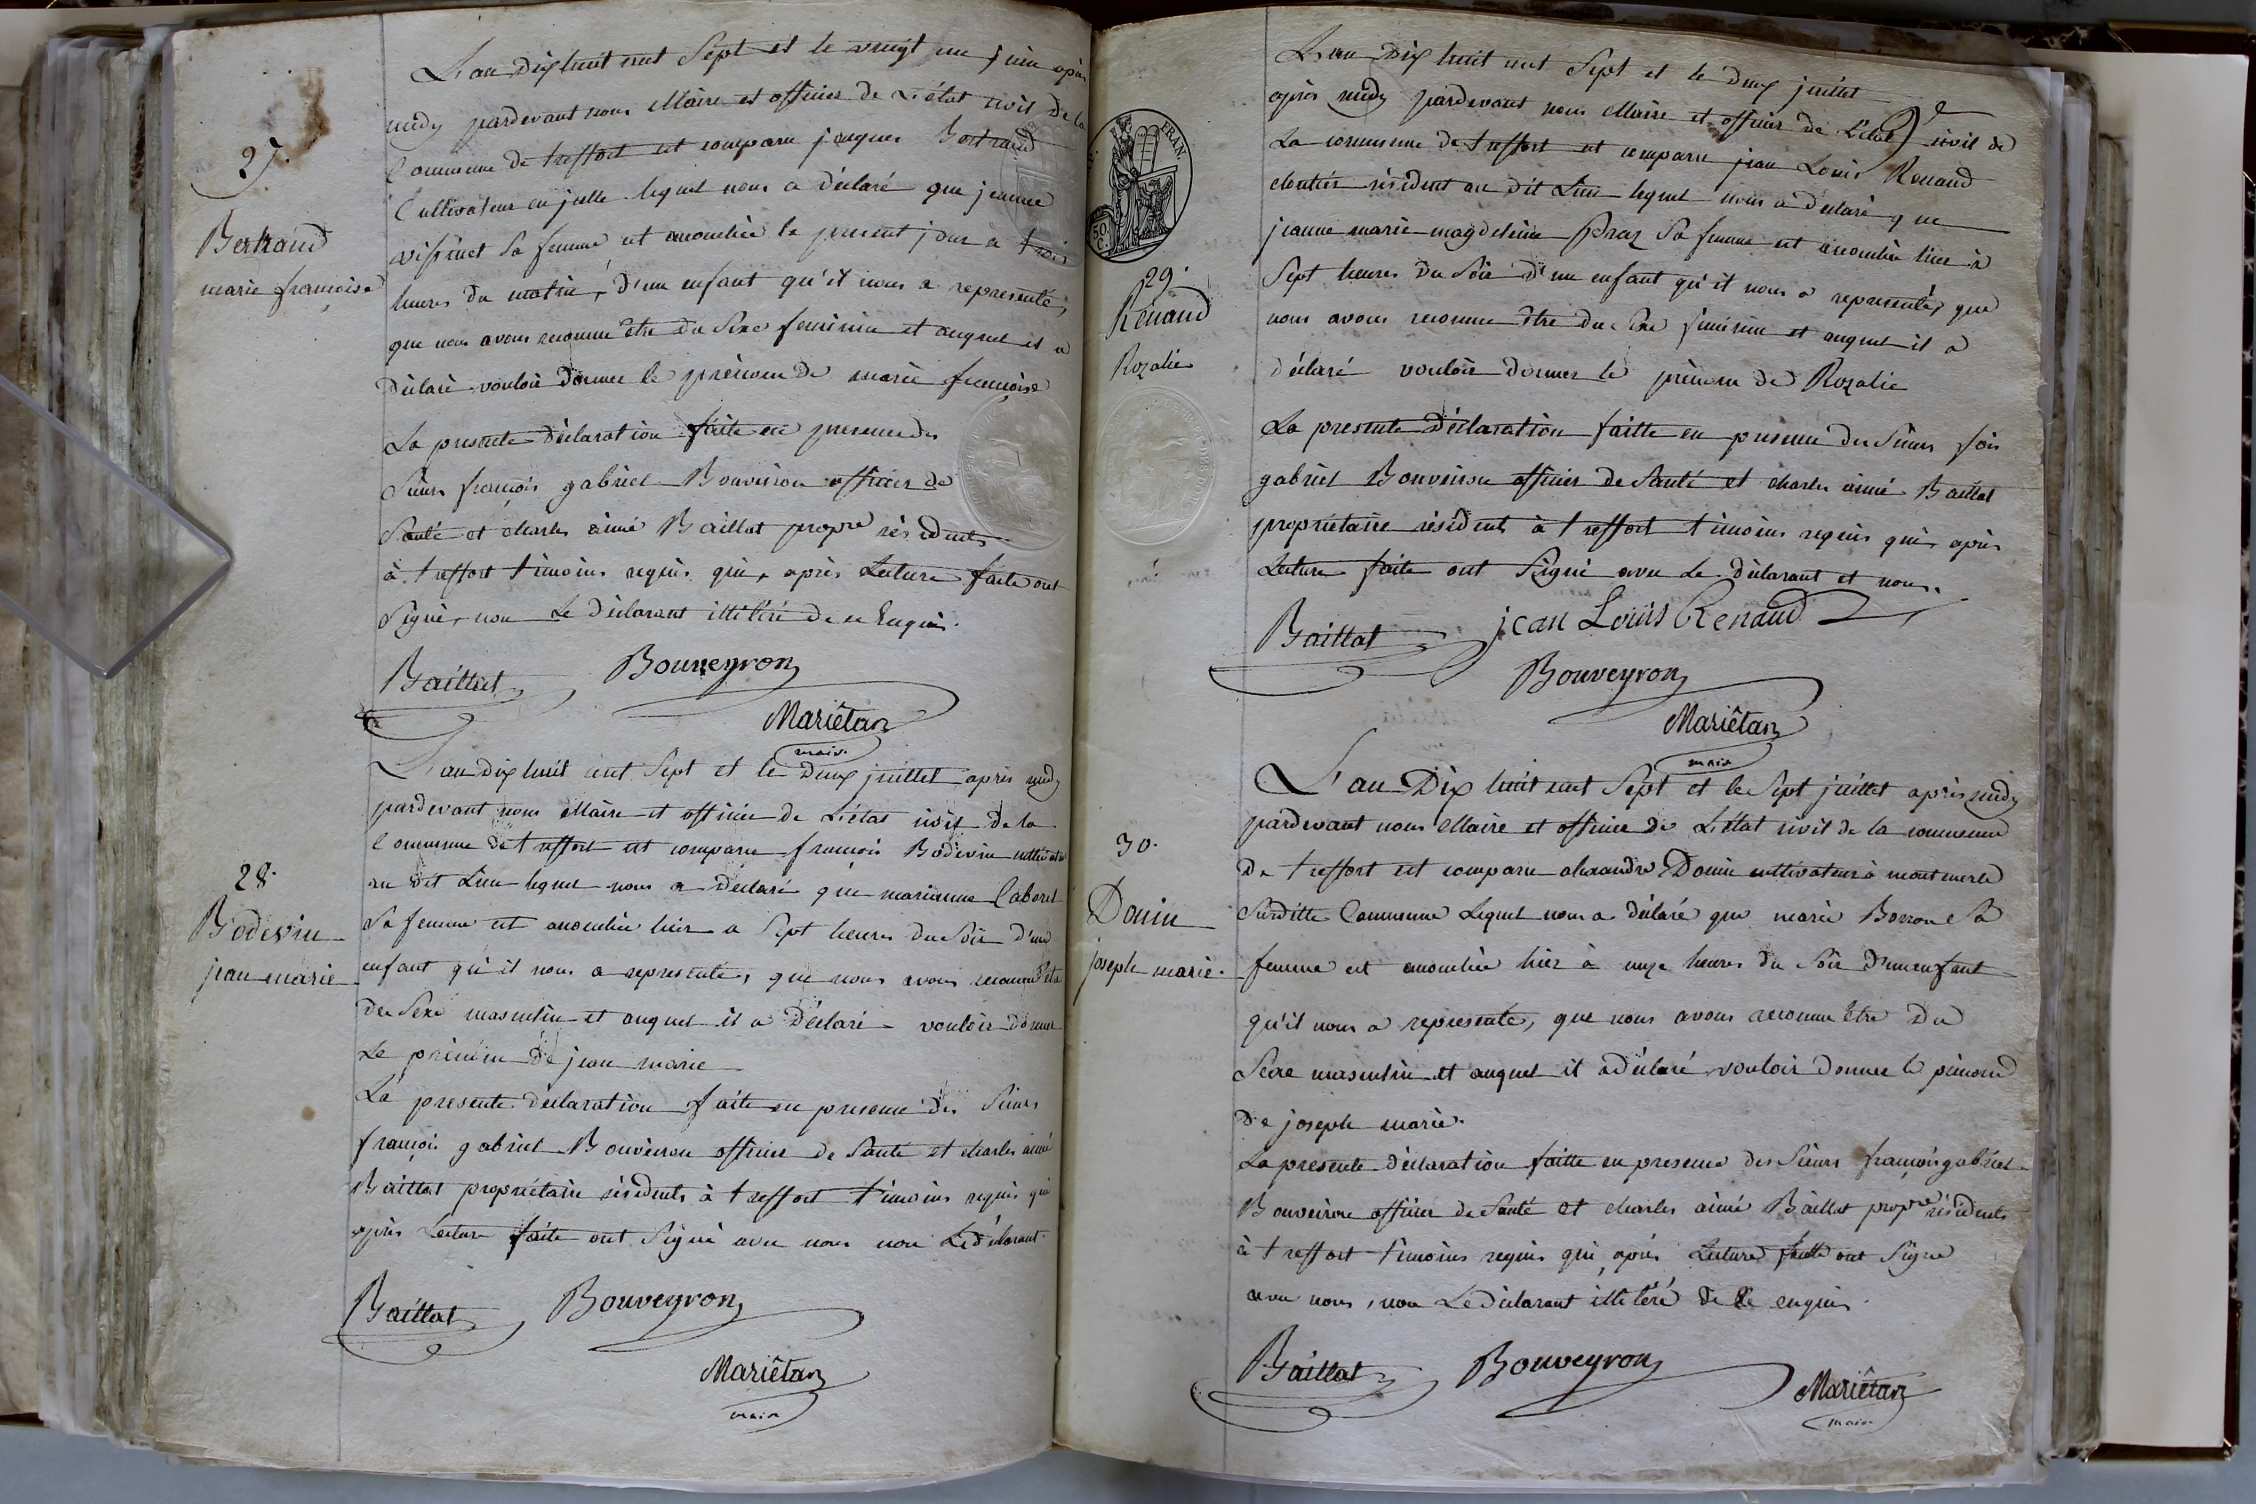 27.
Bertrand
marie françoise
L'an dix huit cent Sept et le vingt un juin après
midy pardevant nous Maire et officier de L'état civil de la
Commune de treffort est comparu jaques Bertrand
Cultivateur en jselle lequel nous a déclaré que jeanne
sa femme est acouchée le present jour a trois
heures du matin, d'un enfant qu'il nous a representé,
que nous avons reconnu être du Sexe feminin et auquel il a
déclaré vouloir donner le prénom de marie françoise
La presente déclaration faite en presence des
Sieurs françois gabriel Bouveiron officier de
Santé et charles aimé Baillat propre résidents
à treffort témoins requis qui, après Lecture faite ont
Signé, non Le déclarant illitéré de ce Enquis.
Baillat Bouveyron
Mariêtan
maire
28.
Bodevin
jean marie
L'an dix huit cent Sept et le Deux juillet après midy
pardevant nous Maire et officier de L'état civil de la
Commune de treffort est comparu françois Bodevin cultivateur
au dit Lieu lequel nous a déclaré que marianne Caboret
Sa femme est acouchée hier a Sept heures du Soir d'un
enfant qu'il nous a representé, que nous avons reconnu être
du Sexe masculin et auquel il a déclaré vouloir donner
Le prénom de jean marie
La presente déclaration faite en presence des Sieurs
françois gabriel Bouveiron officier de Santé et charles aimé
Baillat propriétaire résidents à treffort témoins requis qui
après Lecture faite ont Signé avec nous non Le déclarant.
Baillat Bouveyron
Mariêtan
maire
FRAN.
50.
C.
29.
Renaud
Rozalie
L'an Dix huit cent Sept et le Deux juillet
après midy pardevant nous Maire et officier de L'état civil de
La commune de treffort est comparu jean Louis Renaud
cloutier résident au dit Lieu lequel nous a déclaré que
jeanne marie magdeleine Praz Sa femme est acouchée hier à
Sept heures du Soir d'un enfant qu'il nous a representé, que
nous avons reconnu être du Sexe feminin et auquel il a
déclaré vouloir donner le prénom de Rozalie
La presente Déclaration faitte en presence des Sieurs fois
gabriel Bouveiron officier de Santé et charles aimé Baillat
propriétaire résidents à treffort témoins requis qui, après
Lecture faite ont Signé avec Le déclarant et nous.
Baillat jean Louis Renaud
Bouveyron
Mariêtan
maire
30.
Donin
joseph marie.
L'an Dix huit cent Sept et le Sept juillet après midy
pardevant nous Maire et officier de L'état civil de la commune
De treffort est comparu alexandre Donin cultivateur à montmerle
Surditte Commune Lequel nous a déclaré que marie Borron Sa
femme est acouchée hier à onze heures du Soir d'un enfant
qu'il nous a representé, que nous avons reconnu Etre Du
Sexe masculin et auquel il a déclaré vouloir donner le prénom
De joseph marie.
La presente déclaration faitte en presence des Sieurs françois gabriel
Bouveiron officier de Santé et charles aimé Baillat propre résidents
à treffort témoins requis qui, après Lecture faitte ont Signé
avec nous, non Le déclarant illitéré de Ce enquis.
Baillat Bouveyron
Mariêtan
maire